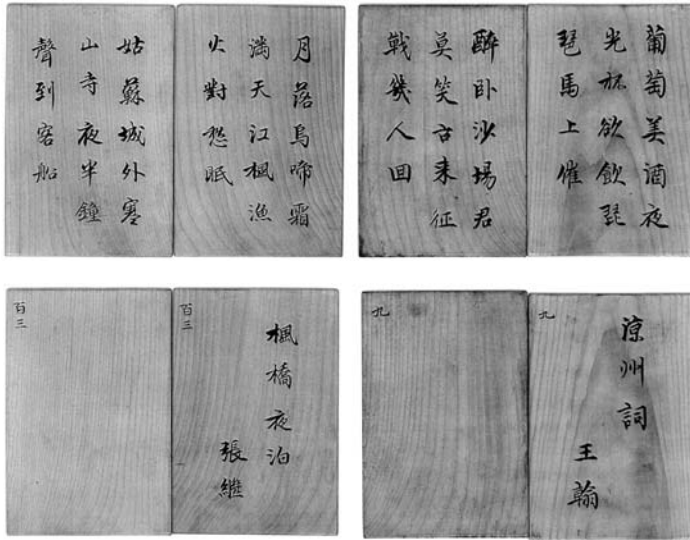 月落烏啼霜
滿天江楓漁
火對愁眠
姑蘇城外寒
山寺夜半鐘
聲到客船
葡萄美酒夜
光杯欲飲琵
琶馬上催
醉卧沙場君
莫笑古来征
戰幾人回
楓橋夜泊
張繼
百三
百三
涼州詞
王翰
九
九